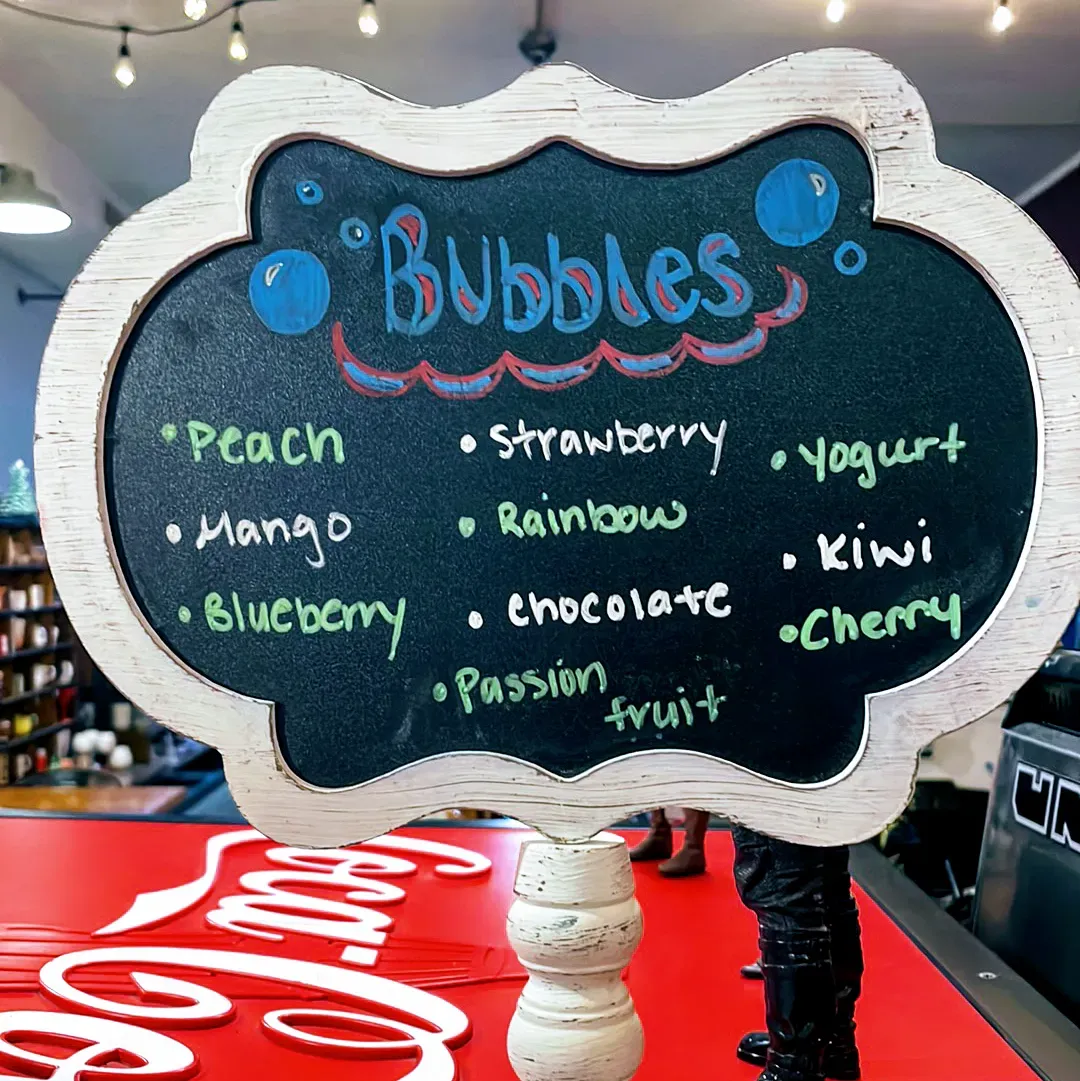 Bubbles
• Peach
• Mango
• Blueberry
• Strawberry
• Rainbow
• chocolate
• Passion
fruit
• Yogurt
• Kiwi
• Cherry
Coca-Cola